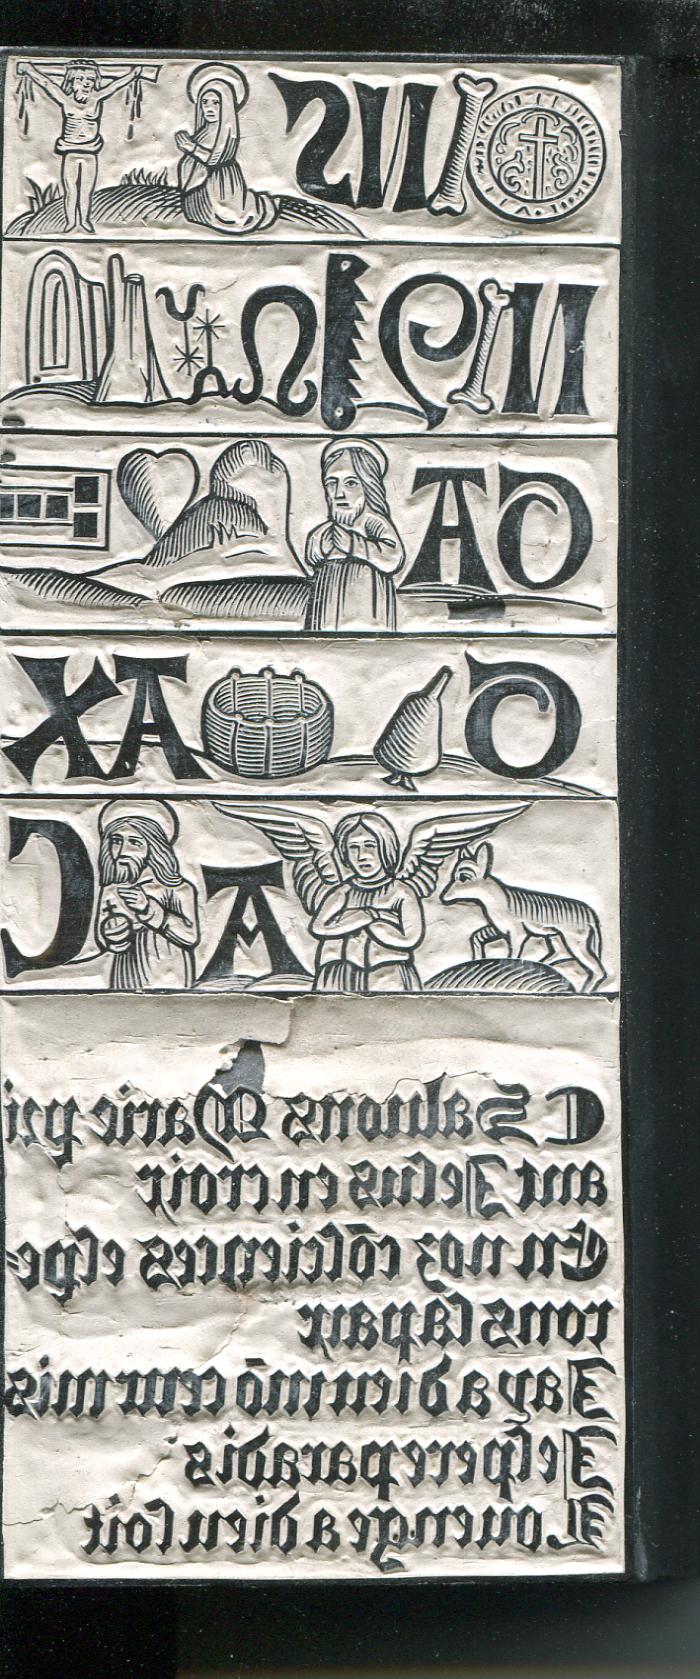 D A
D A X
A C
Saluons Marie pri
ant Jesus en croix
En noz cōsciences espe=
rons la paix
Jay a dieu mō ceur mis
Jespere paradis
Louenge a dieu soit